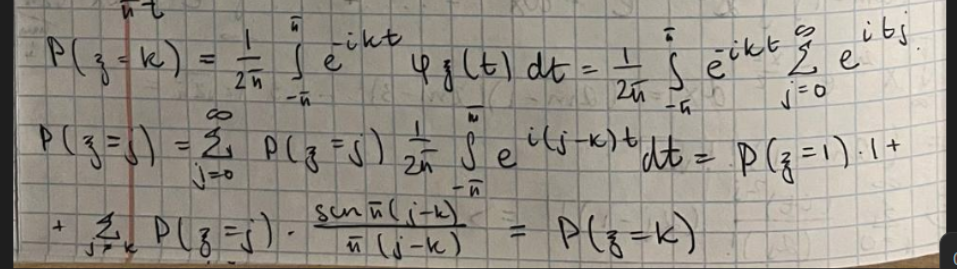 π t
P(ξ = k) = 1/2π ∫_{-π}^{π} e^{-ikt} φ_ξ(t) dt = 1/2π ∫_{-π}^{π} e^{-ikt} ∑_{j=0}^{∞} e^{itj}
P(ξ = j) = ∑_{j=0}^{∞} P(ξ = j) 1/2π ∫_{-π}^{π} e^{i(j-k)t} dt = P(ξ = 1) · 1 +
+ ∑_{j≠k} P(ξ = j) · sin π(j-k) / π(j-k) = P(ξ = k)